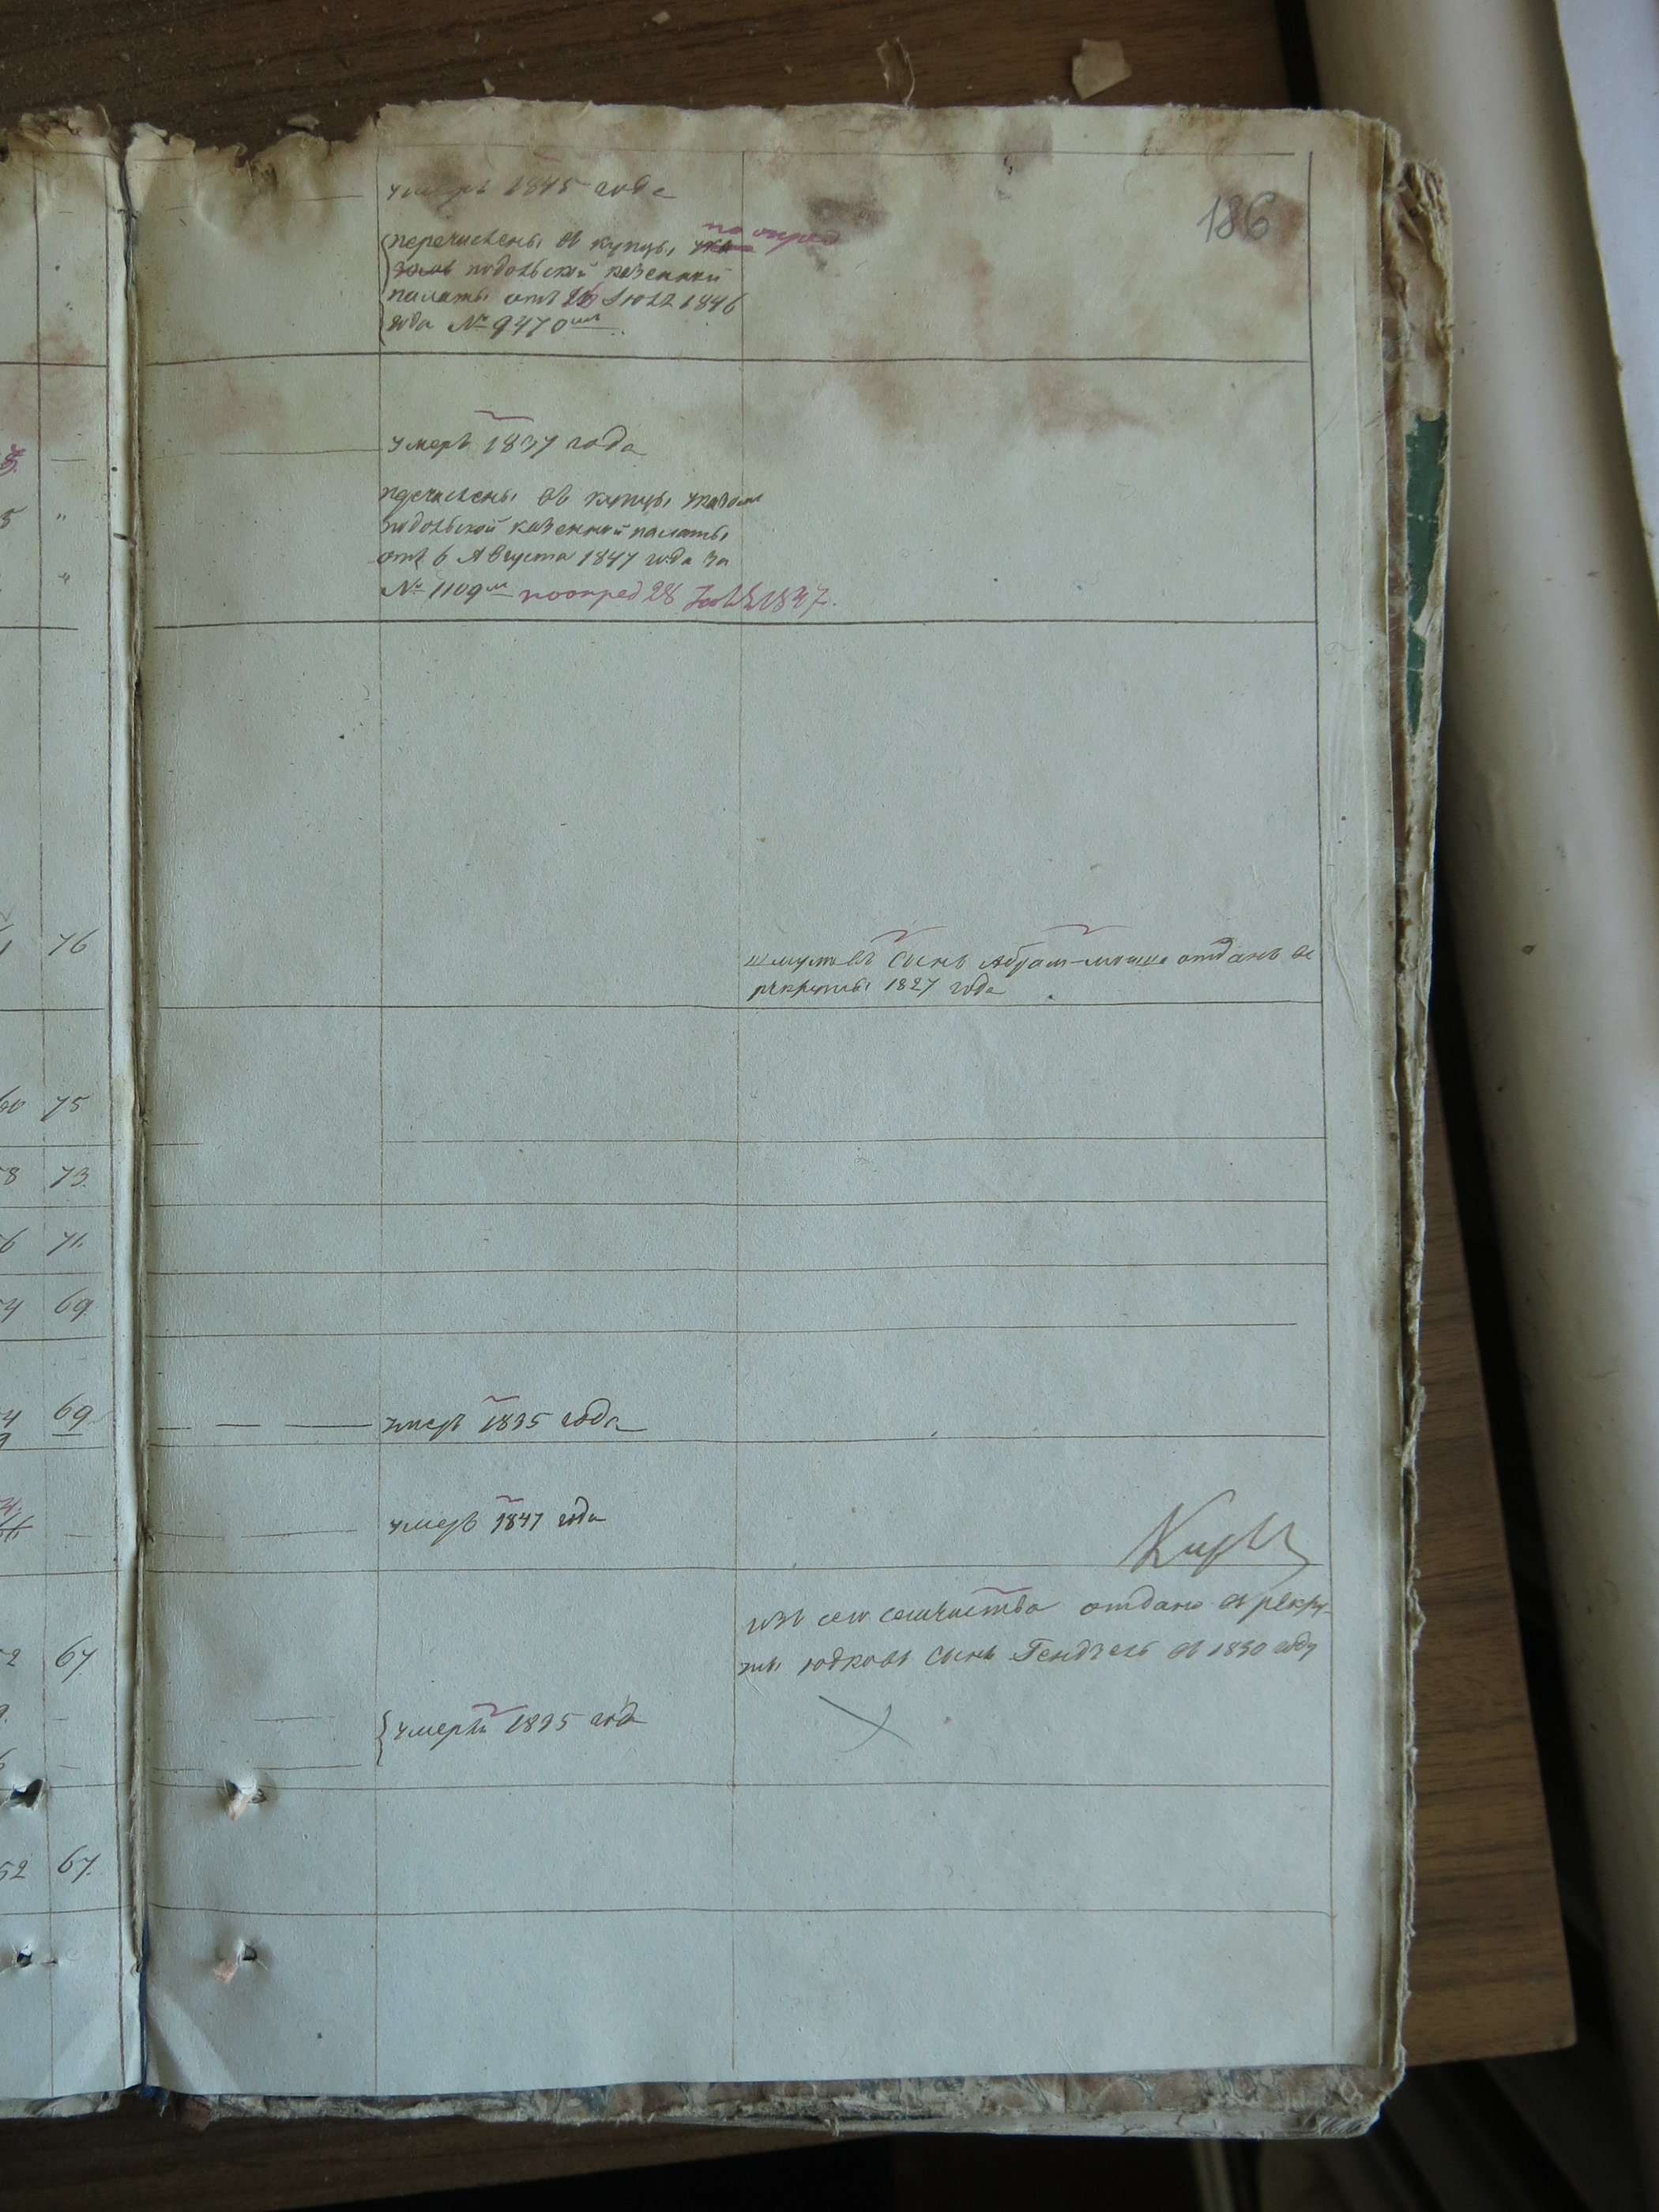 186
умеръ 1845 года
по опред
перечислены въ купцы ука
зомъ подольской казенной
палаты отъ 26 Іюля 1846
года № 9470
умеръ 1837 года
перечислены въ купцы указомъ
подольской казенной палаты
отъ 6 Августа 1847 года за
№ 1109 по опред 28 1847.
76
сынъ Абрам-мошко отданъ въ
рекруты 1827 года
60 75
58 73.
56 71.
54 69.
54 69. умеръ 1835 года
умеръ 1847 года
изъ сего семейства отдано въ рекру-
ты юдковъ сынъ Гендзель въ 1830 году
52 67
умерли 1835 года
52 67.